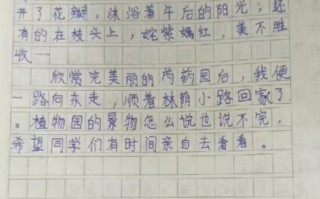 开了花瓣，沐浴着午后的阳光；还
有的在枝头上，姹紫嫣红，美不胜
收……
欣赏完美丽的芍药园后，我便
一路向东走，顺着林荫小路回家了
。植物园的景物怎么说也说不完，
希望同学们有时间亲自去看看。